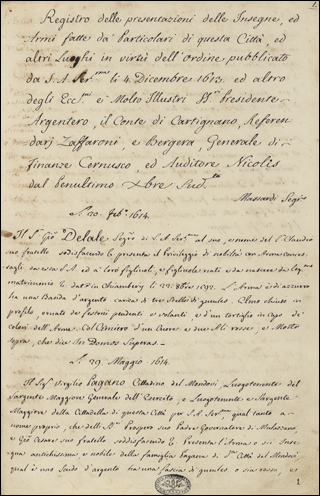 Registro delle presentazioni delle Insegne, ed
Armi fatte da' Particolari di questa Città, ed
altri Luoghi in virtù dell'Ordine pubblicato
da S. A. Ser.ma li 4. Dicembre 1613. ed altro
degli Ecc.mi e Molto Illustri SS.ri presidente
Argentero, il Conte di Cartignano, Referen
darj Zaffaroni, e Bergera, Generale di
Finanze Cernusco, ed Auditore Nicolès
dal penultimo Xbre Sud.to
Massardi Seg.ro
Li 20. Feb.o 1614.
Il S.r Gio. Delale Seg.ro di S. A. Ser.ma al suo, e nome del S.r Claudio
suo fratello sodisfacendo presenta il Privileggio di nobiltà con Arma
da essa S. A. ed a' loro figliuoli, e figliuole nati e da nascere
matrimonio in Chiamberg li 22. 1592. L'Arma è d'azurro
ha una Banda d'argento carica di tre Stelle di gueules. Elmo chiuso in
profilo, ornato de' festoni pendenti e volanti, e d'un tortiglio in capo de'
colori dell'Arma. Col Cimiero d'un Cuore e due Ali rosse, e Motto
sopra, che dice Sic Domus Superas.
Li 29. Maggio 1614.
Il Sig.r Virgilio Pagano Cittadino del Mondovì, Luogotenente del
Sargente Maggiore Generale dell'Esercito, e Luogotenente e Sargente
Maggiore della Cittadella di questa Città per S. A. Ser.ma qual tanto a
nome proprio, che dell S.r Prospero suo Padre Governatore di Mulassano,
e Gio Cesare suo fratello soddisfacendo Presenta l'Arma o sii Inse
gna antichissima e nobile della famiglia Pagana di d.a Città del Mondovì,
qual è uno Scudo d'argento ha una fascia di gueules o sia rosso, e
1